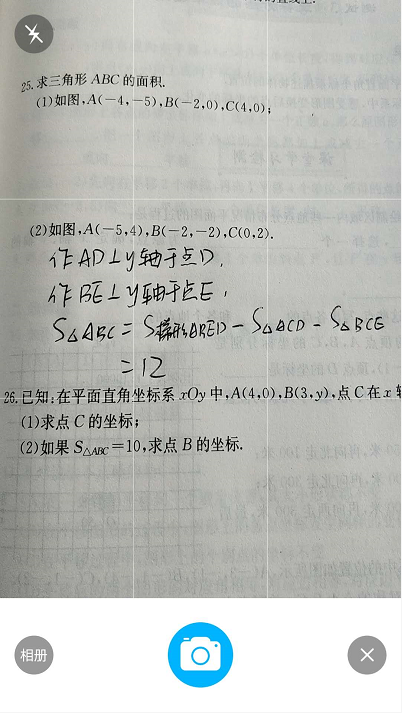 25.求三角形 ABC 的面积.
(1)如图,A(-4,-5),B(-2,0),C(4,0);
(2)如图,A(-5,4),B(-2,-2),C(0,2).
作AD⊥y轴于点D,
作BE⊥y轴于点E,
S△ABC = S梯形ABED - S△ACD - S△BCE
= 12
26.已知:在平面直角坐标系 xOy 中,A(4,0),B(3,y),点 C 在 x
(1)求点 C 的坐标;
(2)如果 S△ABC=10,求点 B 的坐标.
相册